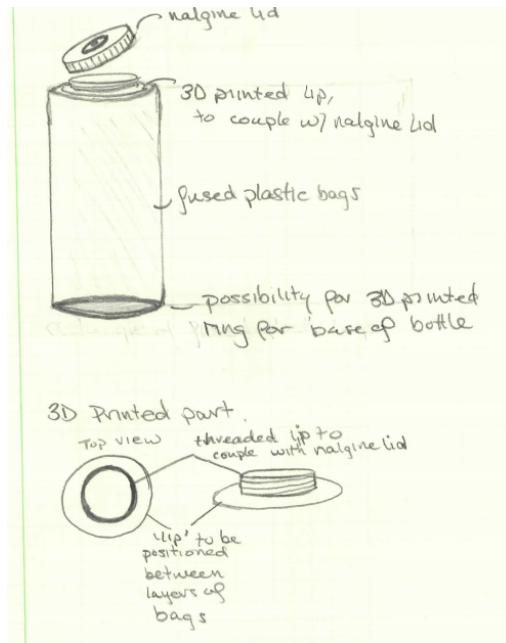 nalgine lid
3D printed lip,
to couple w/ nalgine lid
fused plastic bags
possibility for 3D printed
ring for base of bottle
3D Printed part.
Top view
threaded lip to
couple with nalgine lid
'lip' to be
positioned
between
layers of
bags